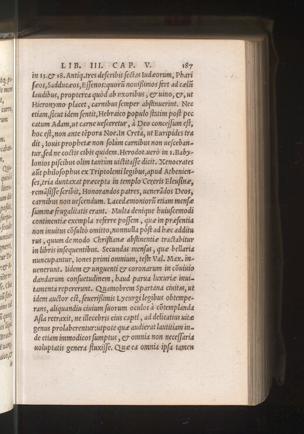 LIB. III. CAP. V. 187
in 13. & 18. Antiq. tres describit sectas Iudæorum, Phari
sæos, Sadducæos, Essenos: quorū nouissimos fert ad cælū
laudibus, propterea quòd ab exoribus, & uino, &, ut
Hieronymo placet, carnibus semper abstinuerint. Nec
etiam, sicut idem sentit, Hebraico populo statim post pec
catum Adam, ut carne uesceretur, à Deo concessum est,
hoc est, non ante tēpora Noe. In Creta, ut Euripides tra
dit, Iouis prophetæ non solùm carnibus non uesceban-
tur, sed ne coctis cibis quidem. Herodot. uerò in 1. Baby-
lonios piscibus olim tantùm uictitasse dicit. Xenocrates
alit philosophus ex Triptolemi legibus, apud Athenien-
ses, tria duntaxat præcepta in templo Cereris Eleusinæ,
remāsisse scribit, Honorādos patres, uenerādos Deos,
carnibus non uescendum. Lacedæmonijs etiam mensæ
summæ frugalitati erant. Multa denique huiuscemodi
continentiæ exempla referre possem, quæ in præsentia
non inuitus cōsultò omitto, nonnulla pòst ad hæc additu
rus, quum de modo Christianæ abstinentiæ tractabitur
in libris insequentibus. Secundas mensas, quæ bellaria
nuncupantur, Iones primi omnium, teste Val. Max. in-
uenerunt. Iidem & unguenti & coronarum in cōuiuio
dandarum consuetudinem, haud parua luxuriæ inui-
tamenta repererunt. Quamobrem Spartana ciuitas, ut
idem auctor est, seuerissimis Lycurgi legibus obtempe-
rans, aliquandiu ciuium suorum oculos à cōtemplanda
Asia retraxit, ne illecebris eius capti, ad delicatius uitæ
genus prolaberentur: utpote quæ audierat lautitiam in-
de etiam immodicos sumptus, & omnia non necessaria
uoluptatis genera fluxisse. Quæ ea omnia ipsa tamen